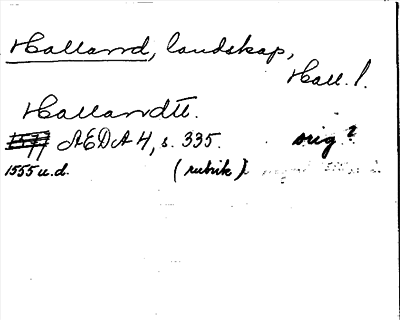 Halland, landskap,
Hall. l.
Hallandtt.
AEDA 4, s. 335. orig?
1555 u.d. (rubrik)